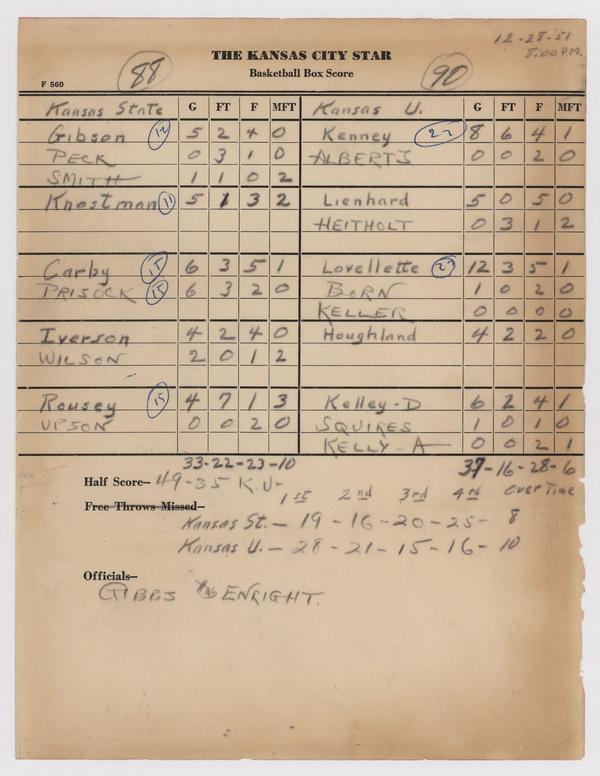 12-28-51
8:00 P.M.
THE KANSAS CITY STAR
Basketball Box Score
88 90
F 560
Kansas State G FT F MFT Kansas U. G FT F MFT
Gibson 12 5 2 4 0 Kenney 22 8 6 4 1
PECK 0 3 1 0 ALBERTS 0 0 2 0
SMITH 1 1 0 2
Knostman 11 5 1 3 2 Lienhard 5 0 5 0
HEITHOLT 0 3 1 2
Carby 15 6 3 5 1 Lovellette 27 12 3 5 1
PRISOCK 15 6 3 2 0 BORN 1 0 2 0
KELLER 0 0 0 0
Iverson 4 2 4 0 Houghland 4 2 2 0
WILSON 2 0 1 2
Rousey 15 4 7 1 3 Kelley-D 6 2 4 1
UPSON 0 0 2 0 SQUIRES 1 0 1 0
KELLY-A 0 0 2 1
33-22-23-10 37-16-28-6
Half Score— 49-35 K.U-
1st 2nd 3rd 4th Over Time
Free Throws Missed—
Kansas St. — 19 - 16 - 20 - 25 - 8
Kansas U. — 28 - 21 - 15 - 16 - 10
Officials—
GIBBS ENRIGHT.